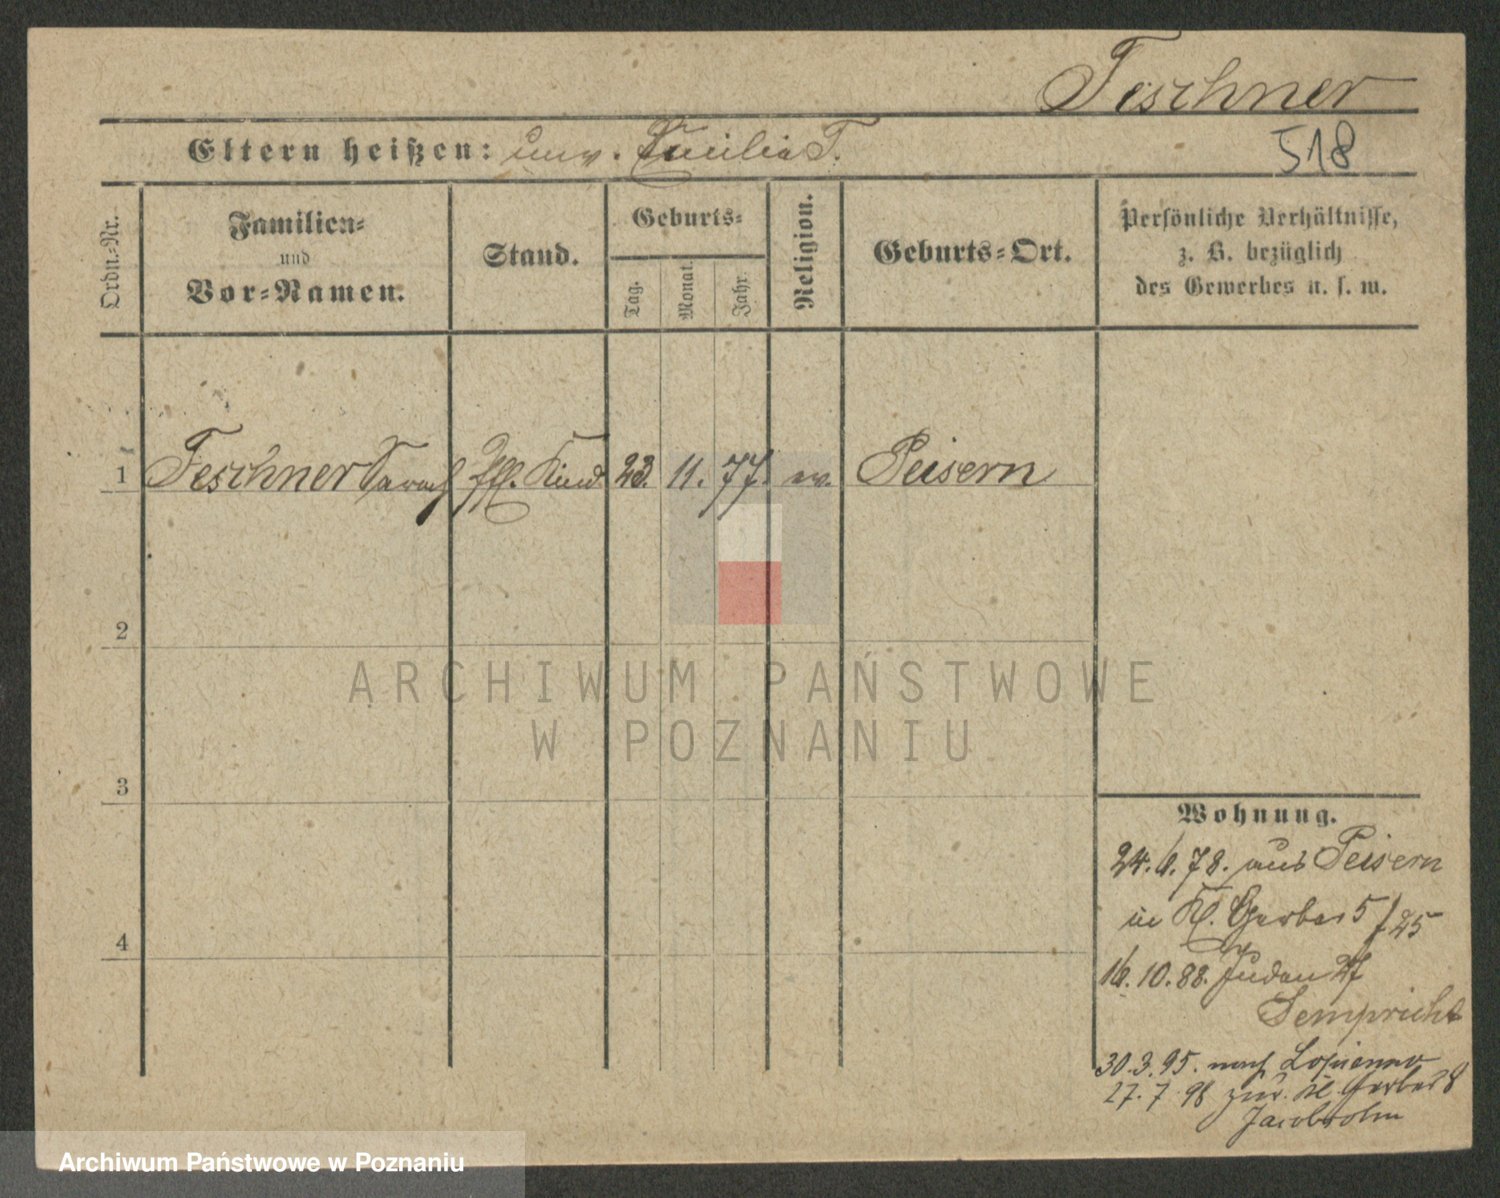 Teschner
Eltern heißen: unv. Caecilia T.
518
Ordn.-Nr.
Familien-
und
Vor-Namen.
Stand.
Geburts-
Tag.
Monat.
Jahr.
Religion.
Geburts-Ort.
Persönliche Verhältnisse,
z. B. bezüglich
des Gewerbes u. s. w.
1 Teschner Sarah Kind 23. 11. 77. Peisern
2
3
4
ARCHIWUM PAŃSTWOWE
W POZNANIU
Wohnung.
24. 6. 78. aus Peisern
in Kl. Gerber 5 / 25
16. 10. 88. Juden 27
Sempricht
30. 3. 95. nach Lopienno
27. 7. 98 zur. Kl. Gerber 8
Jacobsohn
Archiwum Państwowe w Poznaniu